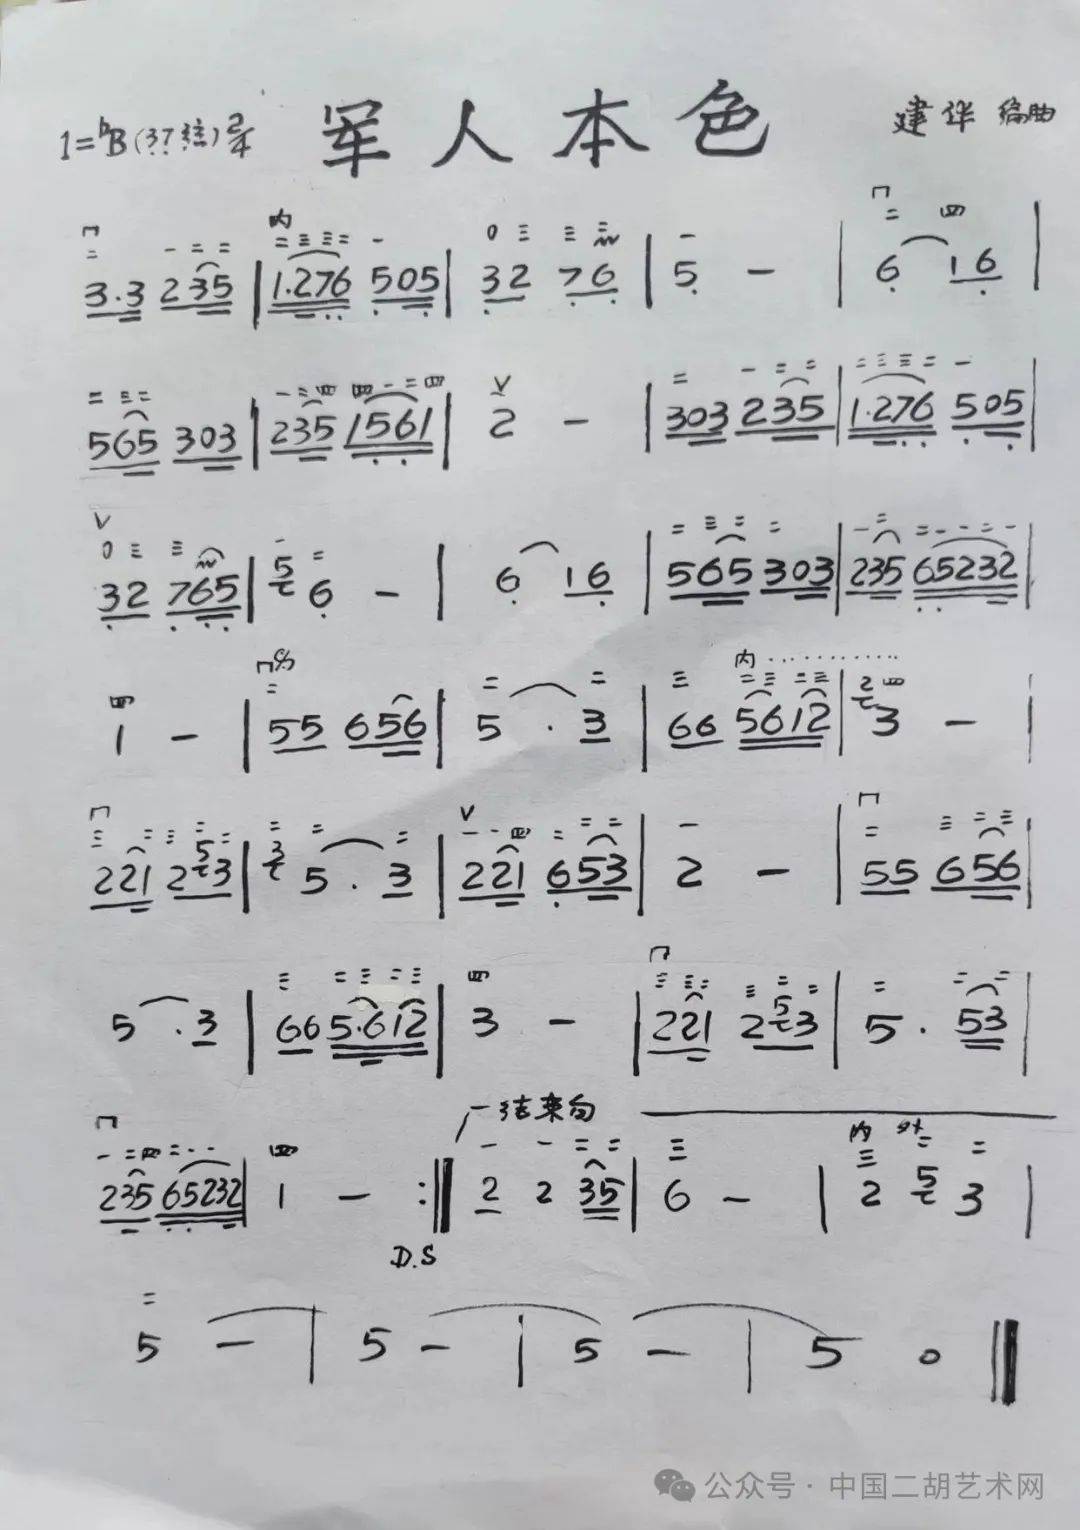 1=bB(37弦) 2/4 军人本色 建华 编曲
3.3 235 | 1.276 505 | 32 76 | 5 - | 6 16 |
565 303 | 235 1561 | 2 - | 303 235 | 1.276 505 |
32 765 | 5 6 - | 6 16 | 565 303 | 235 65232 |
1 - | 55 656 | 5 . 3 | 66 5612 | 2 3 - |
221 253 | 3 5 . 3 | 221 653 | 2 - | 55 656 |
5 . 3 | 66 5.612 | 3 - | 221 253 | 5 . 53 |
结束句
235 65232 | 1 - :|| 2 2 35 | 6 - | 2 5 3 |
D.S
5 - | 5 - | 5 - | 5 0 ||
公众号·中国二胡艺术网